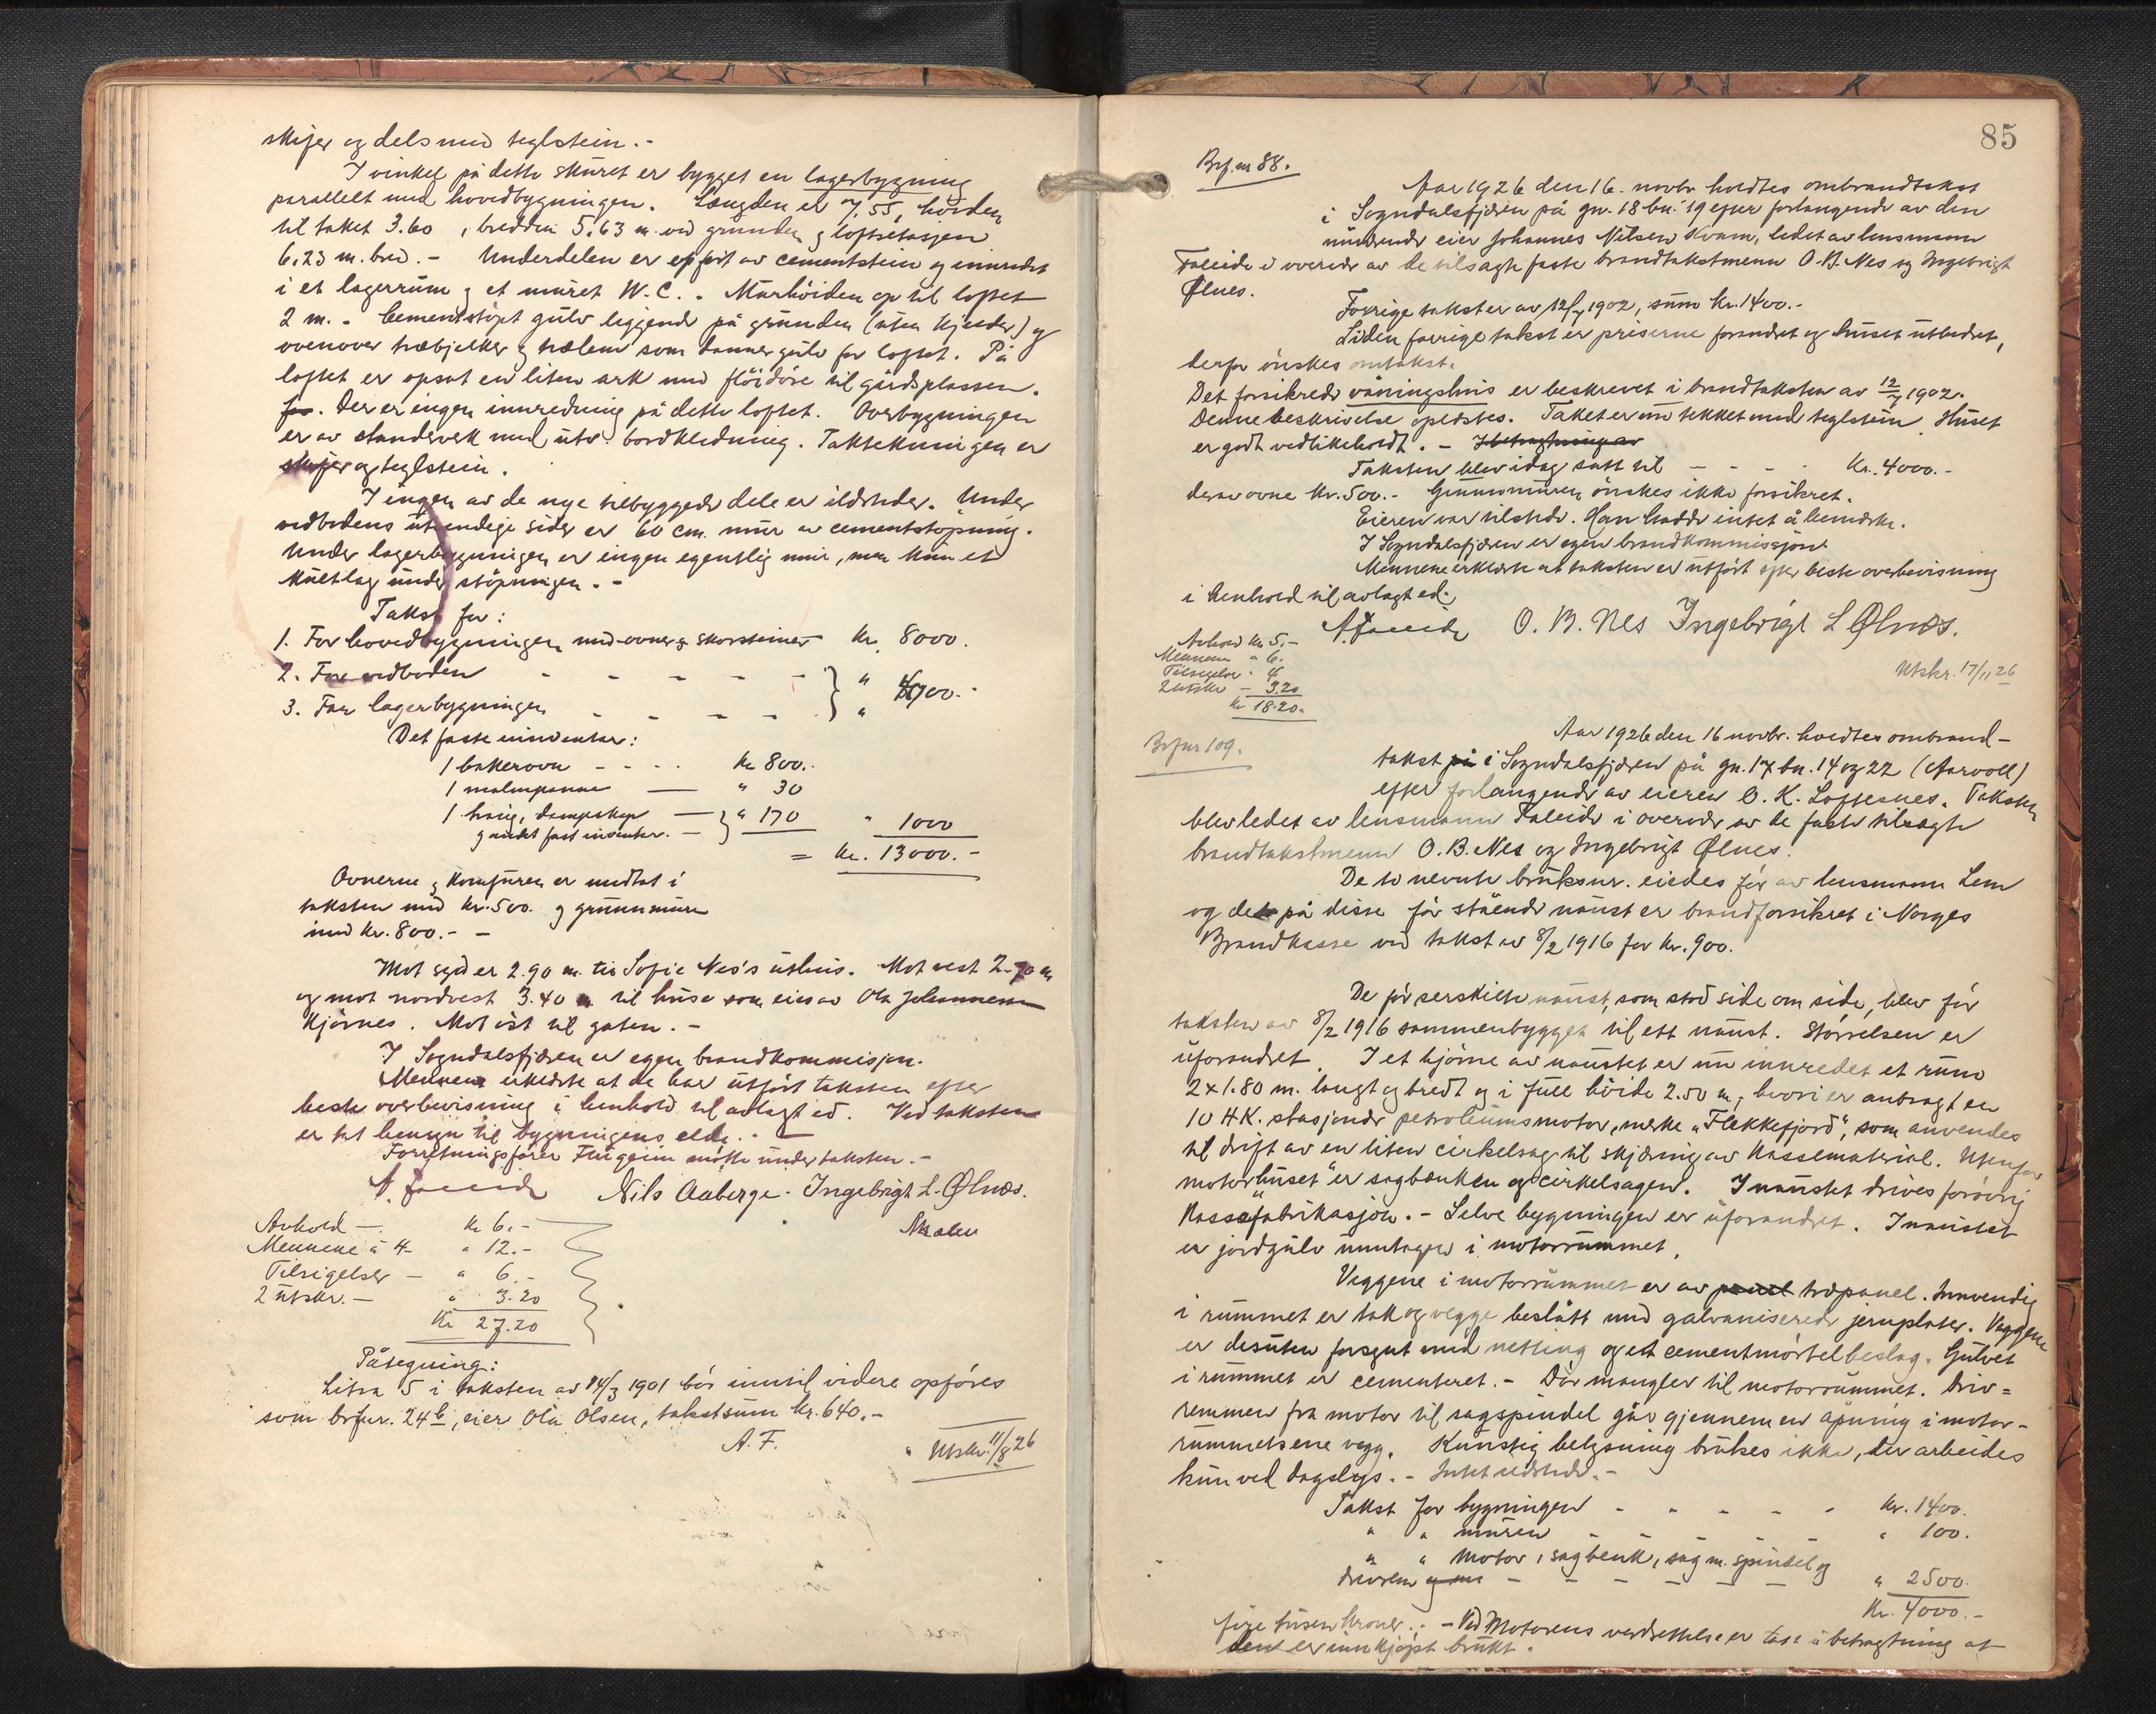 skifer og dels med teglstein.-
I vinkel på dette skuret er bygget en lagerbygning
parallelt med hovedbygningen. Længden er 7.55, høiden
til taket 3.60, bredden 5.63 m. ved grunden og loftsetasjen
6.23 m. bred.- Underdelen er opført av cementstein og innredet
i et lagerrum og et muret W.C.. Murhöiden op til loftet
2 m.- Cementstöpt gulv liggende på grunden (uten kjelder) og
ovenover træbjelker og som danner gulv for loftet. På
loftet er opsat en liten ark med flöidöre til gårdsplassen.
Der er ingen innredning på dette loftet. Overbygningen
er av standverk med utv. bordkledning. Taktekningen er
skifer og teglstein.
I ingen av de nye tilbyggede dele er ildsteder. Under
vedbodens utvendige sider er 60 cm. mur av cementstöpning.
Under lagerbygningen er ingen egentlig mur, men kun et
kultlag under stöpningen.-
Takst for:
1. For hovedbygningen med ovner og skorsteiner Kr. 8000.
2. For vedboden - - - - - } "
3. For lagerbygningen - - - - } " 4000.-
Det faste inventar:
1 bakerovn - - - - Kr 800.-
1 malmpanne — " 30
1 dampskap —
og andet fast inventar. — } " 170 " 1000
= Kr. 13000.-
Ovnerne og komfuren er medtat i
taksten med kr. 500. og grunnmuren
med kr. 800.- -
Mot syd er 2.90 m. til Sofie Nes's uthus. Mot vest 2.70 m
og mot nordvest 3.40 m til huse som eies av Ola Johannesen
Kjörnes. Mot öst til gaten.-
I Sogndalsfjæren er egen brandkommisjon.
Mennene erklærte at de har utfört taksten efter
beste overbevisning i henhold til avlagt ed. Ved taksten
er tat hensyn til bygningens elde.-
Forretningsförer mötte under taksten.-
A. Faleide Nils Aaberge. Ingebrigt L. Ølnæs.
Avhold —. Kr 6.-
Mennene à 4- " 12.-
Tilsigelser — " 6.-
2 utskr.— " 3.20
Kr 27.20
Påtegning:
Litra 5 i taksten av 14/3 1901 bör inntil videre opföres
som brfnr. 24b, eier Ola Olsen, takstsum kr. 640.-
A. F.
Utskr. 11/8 26
85
Brf.nr 88.
Aar 1926 den 16. novbr. holdtes ombrandtakst
i Sogndalsfjæren på gn. 18 bn. 19 efter forlangende av den
nuværende eier Johannes Nilsen Kvam, ledet av lensmann
Faleide i overvær av de tilsagte faste brandtakstmenn O.B. Nes og Ingebrigt
Ølnes.
Forrige takst er av 12/7 1902, sum kr. 1400.-
Siden forrige takst er priserne forandret og huset utbedret,
derfor önskes omtakst.
Det forsikrede våningshus er beskrevet i brandtaksten av 12/7 1902.
Denne beskrivelse oplæstes. Taket er nu tekket med teglstein. Huset
er godt vedlikeholdt.- I betragtning av
Taksten blev idag satt til - - - - Kr. 4000.-
derav ovne kr. 500.- Grunnmuren önskes ikke forsikret.
Eieren var tilstede. Han hadde intet å bemerke.
I Sogndalsfjæren er egen brandkommissjon.
Mennene erklærte at taksten er utfört efter beste overbevisning
i henhold til avlagt ed.
A. Faleide O. B. Nes Ingebrigt L Ølnæs.
Avhold kr 5.-
Mennene " 6.
Tilsigelse " 4
2 utskr - 3.20
Kr 18.20.
Utskr. 17/11 26
Brfnr 109.
Aar 1926 den 16 novbr. holdtes ombrand-
takst på i Sogndalsfjæren på gn. 17 bn. 14 og 22 (Aarvoll)
efter forlangende av eieren O. K. Loftesnes. Taksten
blev ledet av lensmann Faleide i overvær av de faste tilsagte
brandtakstmenn O.B. Nes og Ingebrigt Ølnes.
De to nevnte bruksnr. eiedes för av lensmann Lem
og det på disse för stående naust er brandforsikret i Norges
Brandkasse ved takst av 8/2 1916 for kr. 900.
De för serskilte naust, som stod side om side, blev för
taksten av 8/2 1916 sammenbygget til ett naust. Störrelsen er
uforandret. I et hjörne av naustet er nu innredet et rum
2 x 1.80 m. langt og bredt og i full höide 2.50 m., hvori er anbragt en
10 HK. stasjonær petroleumsmotor, merke "Flekkefjord", som anvendes
til drift av en liten cirkelsag til skjæring av kassematerial. Utenfor
"motorhuset" er sagbenken og cirkelsagen. I naustet drives forövrig
kassefabrikasjon.- Selve bygningen er uforandret. I naustet
er jordgulv unntagen i motorrummet.
Veggene i motorrummet er av panel træpanel. Innvendig
i rummet er tak og vegge beslått med galvaniserede jernplater. Veggene
er desuten forsynt med netting og et cementmörtelbeslag. Gulvet
i rummet er cementeret.- Dör mangler til motorrummet. Driv=
remmen fra motor til sagspindel går gjennem en åpning i motor-
rummets ene vegg. Kunstig belysning brukes ikke, der arbeides
kun ved dagslys.- Intet ildsted.-
Takst for bygningen - - - - - Kr. 1400.
" " muren - - - - - " 100.
" " motor, sagbenk, sag m. spindel og
drivrem - - - - - - " 2500.
Kr. 4000.-
fire tusen kroner.- Ved Motorens verdsettelse er tatt i betragtning at
den er innkjöpt brukt.